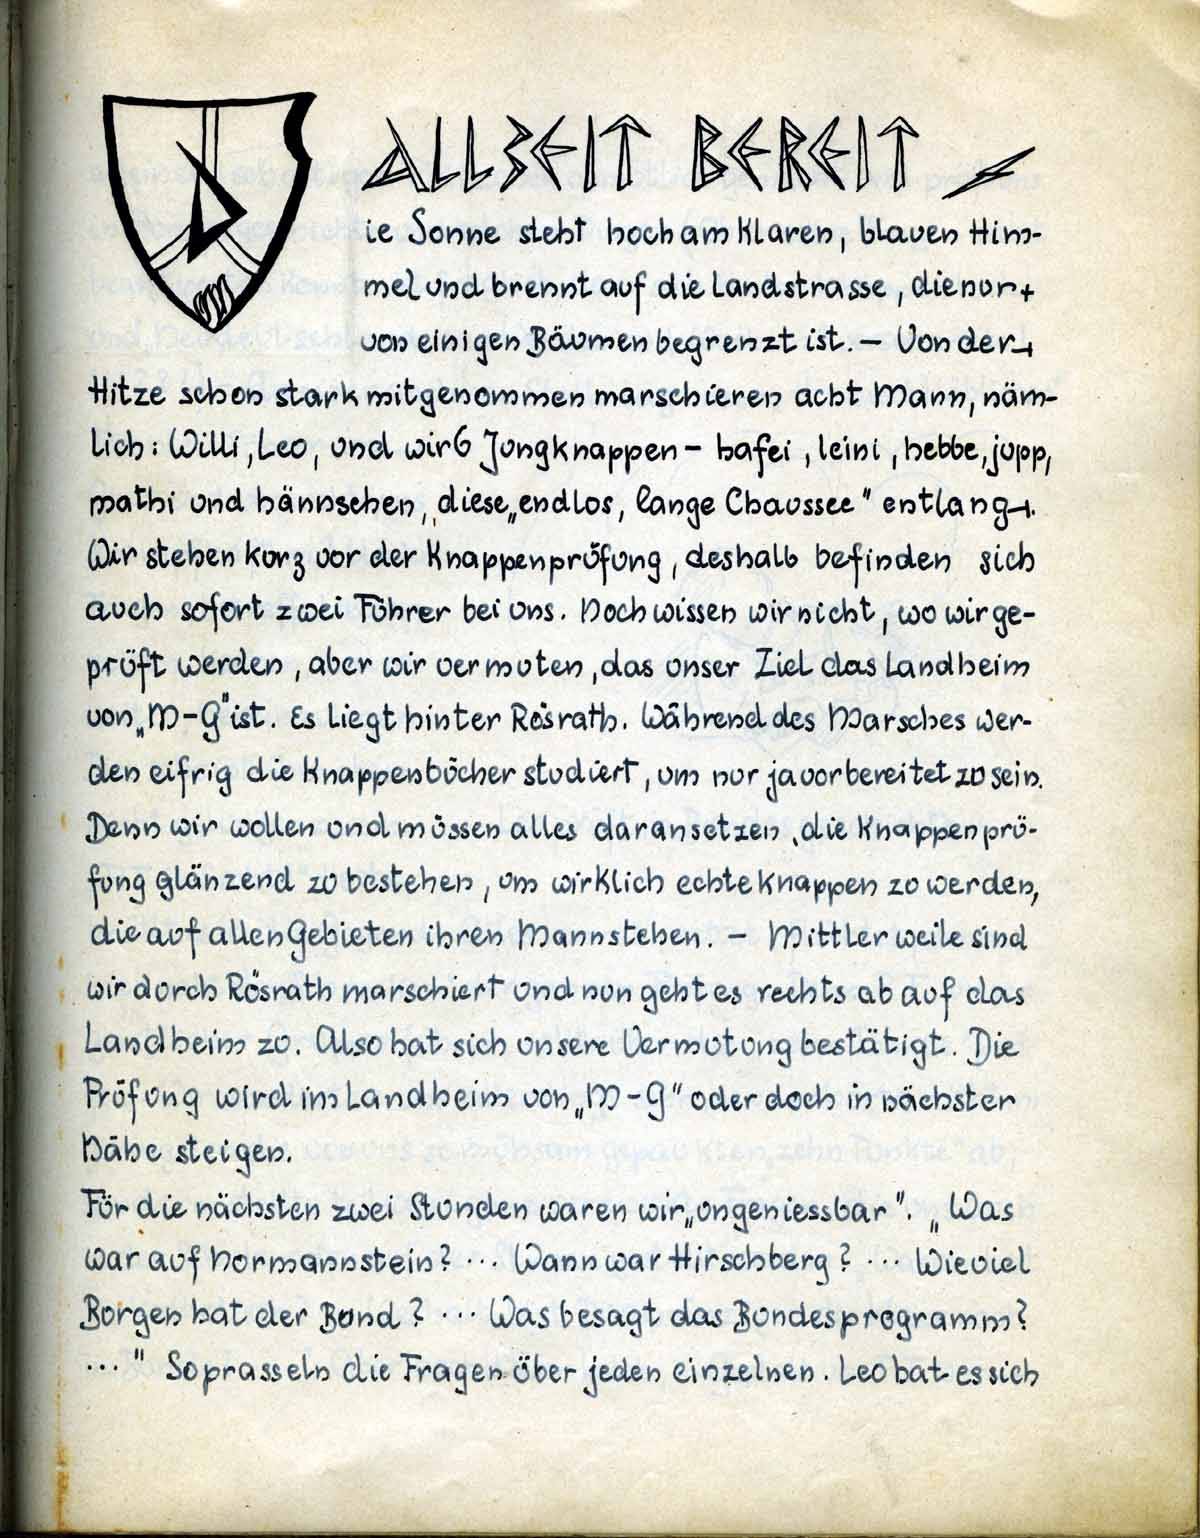 ALLZEIT BEREIT
D
ie Sonne steht hoch am Klaren, blauen Him-
mel und brennt auf die Landstrasse, die nur
von einigen Bäumen begrenzt ist. — Von der
Hitze schon stark mitgenommen marschieren acht Mann, näm-
lich: Willi, Leo, und wir 6 Jungknappen - hafei, leini, hebbe, jupp,
mathi und hännschen, diese „endlos, lange Chaussee" entlang.
Wir stehen kurz vor der Knappenprüfung, deshalb befinden sich
auch sofort zwei Führer bei uns. Noch wissen wir nicht, wo wir ge-
prüft werden, aber wir vermuten, das unser Ziel das Landheim
von „M-G" ist. Es liegt hinter Rösrath. Während des Marsches wer-
den eifrig die Knappenbücher studiert, um nur ja vorbereitet zu sein.
Denn wir wollen und müssen alles daransetzen, die Knappenprü-
fung glänzend zu bestehen, um wirklich echte Knappen zu werden,
die auf allen Gebieten ihren Mann stehen. — Mittlerweile sind
wir durch Rösrath marschiert und nun geht es rechts ab auf das
Landheim zu. Also hat sich unsere Vermutung bestätigt. Die
Prüfung wird im Landheim von „M-G" oder doch in nächster
Nähe steigen.
Für die nächsten zwei Stunden waren wir „ungeniessbar". „Was
war auf Normannstein? ... Wann war Hirschberg? ... Wieviel
Burgen hat der Bund? ... Was besagt das Bundesprogramm?
..." So prasseln die Fragen über jeden einzelnen. Leo hat es sich